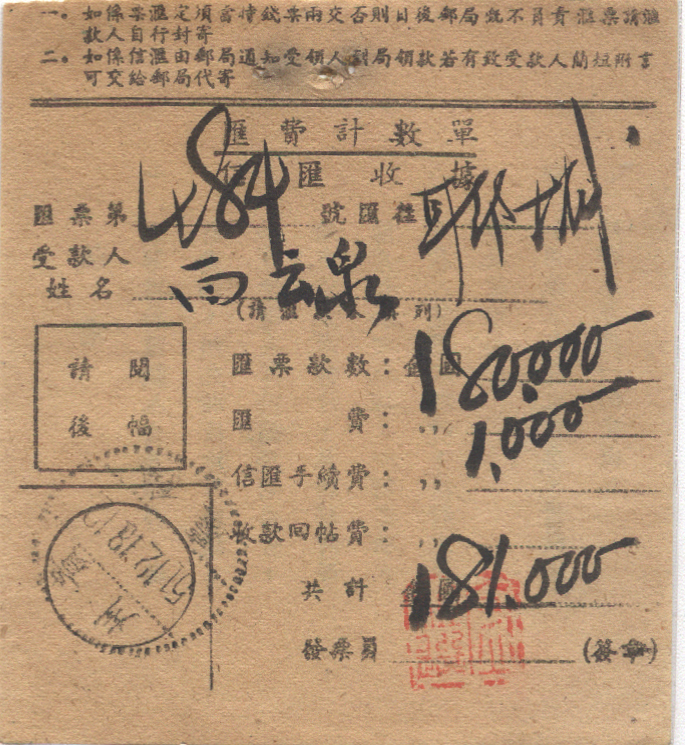 一。如係票滙定須當時錢票兩交否則日後郵局概不負責滙票請滙
款人自行封寄
二。如係信滙由郵局通知受領人到局領款若有致受款人簡短附言
可交給郵局代寄
匯費計數單
信匯收據
匯票第484號匯往聊城
受款人
姓名 丙云泉
(請匯款人填列)
請閱
後幅
匯票款數:金圓 180,000
匯費:,, 1,000
信匯手續費:,,
收款回帖費:,,
共計 金圓 181,000
發票員 (簽章)
51.12.18
州